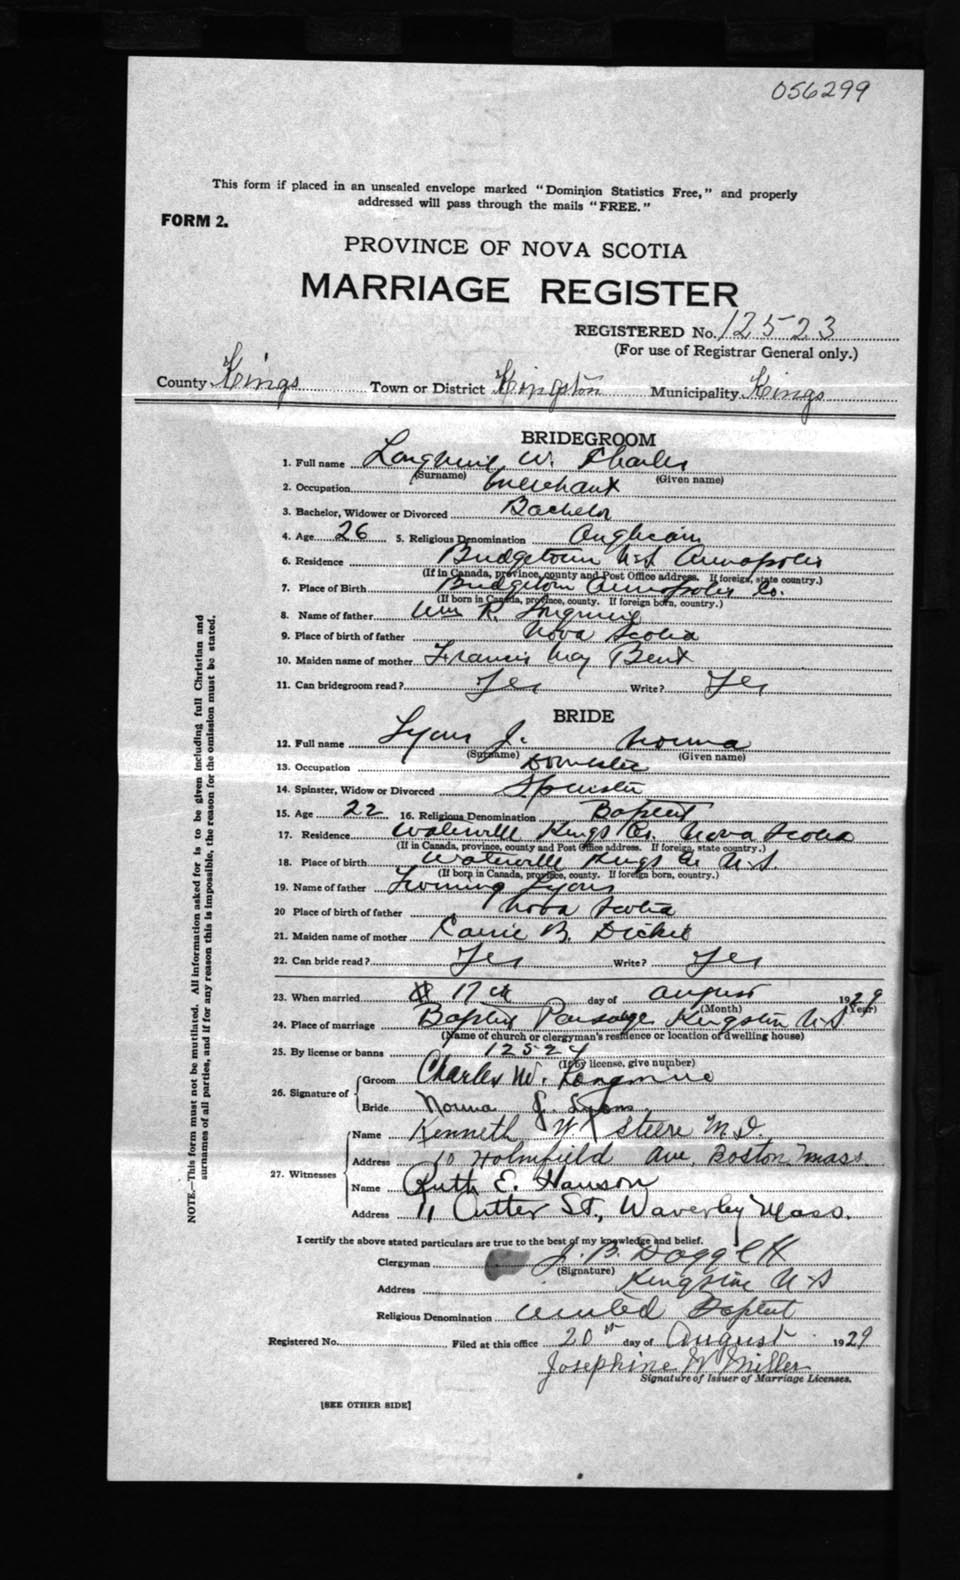 056299
This form if placed in an unsealed envelope marked "Dominion Statistics Free," and properly
addressed will pass through the mails "FREE."
FORM 2.
PROVINCE OF NOVA SCOTIA
MARRIAGE REGISTER
REGISTERED No. 12523
(For use of Registrar General only.)
County Kings Town or District Kingston Municipality Kings
BRIDEGROOM
1. Full name Longmire W. Charles
(Surname) (Given name)
2. Occupation Merchant
3. Bachelor, Widower or Divorced Bachelor
4. Age 26 5. Religious Denomination Anglican
6. Residence Bridgetown N.S. Annapolis
(If in Canada, province, county and Post Office address. If foreign, state country.)
7. Place of Birth Bridgetown Annapolis Co.
(If born in Canada, province, county. If foreign born, country.)
8. Name of father Wm R. Longmire
9. Place of birth of father Nova Scotia
10. Maiden name of mother Francis May Bent
11. Can bridegroom read? Yes Write? Yes
BRIDE
12. Full name Lyons J. Norma
(Surname) (Given name)
13. Occupation Domestic
14. Spinster, Widow or Divorced Spinster
15. Age 22 16. Religious Denomination Baptist
17. Residence Waterville Kings Co. Nova Scotia
(If in Canada, province, county and Post Office address. If foreign, state country.)
18. Place of birth Waterville Kings Co N.S.
(If born in Canada, province, county. If foreign born, country.)
19. Name of father Lyons
20 Place of birth of father Nova Scotia
21. Maiden name of mother Carrie B. Dickie
22. Can bride read? Yes Write? Yes
23. When married 17th day of August 1929
(Month) (Year)
24. Place of marriage Baptist Parsonage Kingston N.S.
(Name of church or clergyman's residence or location of dwelling house)
25. By license or banns 12524
(If by license, give number)
26. Signature of Groom Charles W. Longmire
Bride Norma J. Lyons
27. Witnesses Name Kenneth W. Steere M.D.
Address 10 Holmfield Ave, Boston Mass.
Name Ruth E. Hanson
Address 11 Cutter St., Waverley Mass.
I certify the above stated particulars are true to the best of my knowledge and belief.
Clergyman J. B. Daggett
(Signature)
Address Kingston N.S
Religious Denomination United Baptist
Registered No. Filed at this office 20th day of August 1929
Josephine W Miller
Signature of Issuer of Marriage Licenses.
[SEE OTHER SIDE]
NOTE.—This form must not be mutilated. All information asked for is to be given including full Christian and
surnames of all parties, and if for any reason this is impossible, the reason for the omission must be stated.